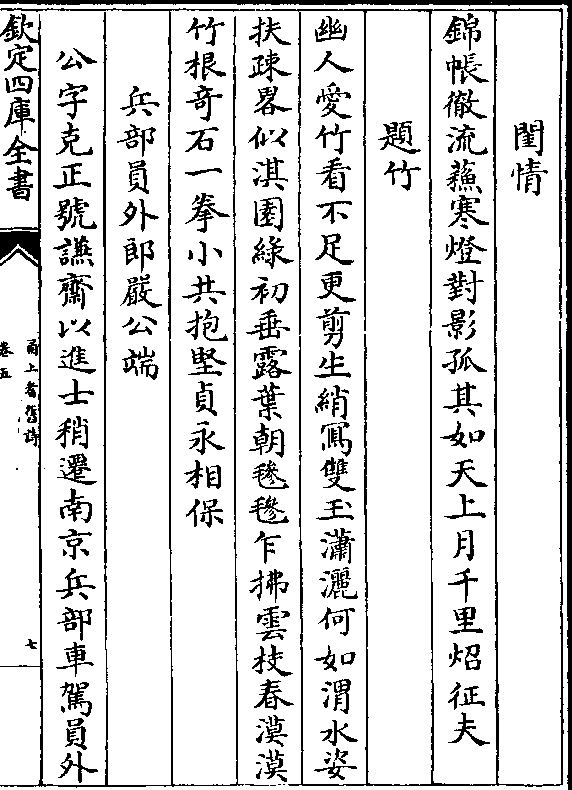 閨情
錦帳徹流蘓寒燈對影孤其如天上月千里炤征夫
題竹
幽人愛竹看不足更剪生綃寫雙玉瀟灑何如渭水姿
扶疎畧似淇園緑初垂露葉朝毿毿乍拂雲枝春漠漠
竹根奇石一拳小共抱堅貞永相保
兵部員外郎嚴公端
公字克正號譙齋以進士稍遷南京兵部車駕員外
欽定四庫全書
甬上耆舊詩
卷五
七